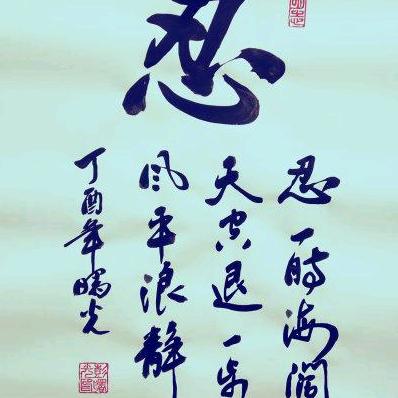 忍
忍一时海阔
天空退一步
风平浪静
丁酉年曙光